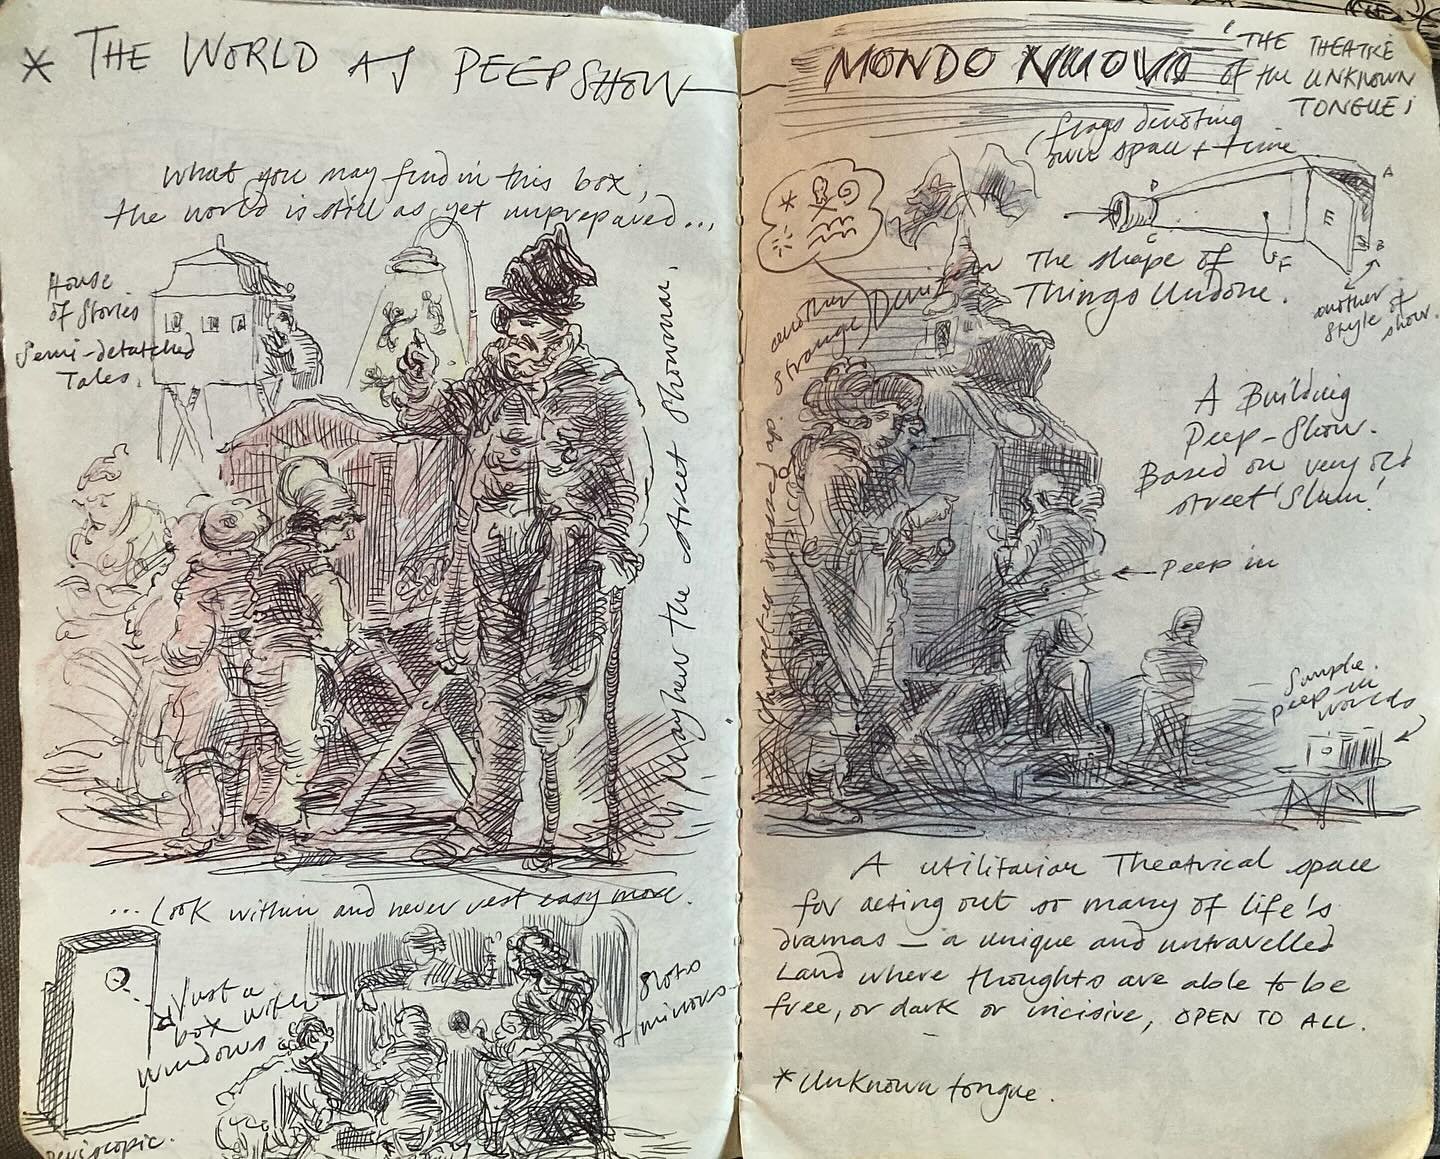 * THE WORLD AS PEEPSHOW
what you may find in this box,
the world is still as yet unprepared...
House
of Stories
Semi-detatched
Tales.
Mayhew the street showman.
... Look within and never rest easy more.
Just a
box with
windows
Slots
+ mirrors
periscopic.
MONDO NUOVO
'THE THEATRE
of the UNKNOWN
TONGUE'
flags denoting
over space + time
A
B
C
D
E
F
The shape of
Things Undone.
another
style of
show.
another
strange Devil
A Building
Peep-Show.
Based on very old
street 'Slum'
Peep in
Character dressed up.
Simple
peep-in
worlds
A utilitarian Theatrical space
for acting out so many of life's
dramas — a unique and untravelled
Land where thoughts are able to be
free, or dark or incisive, OPEN TO ALL.
*Unknown tongue.